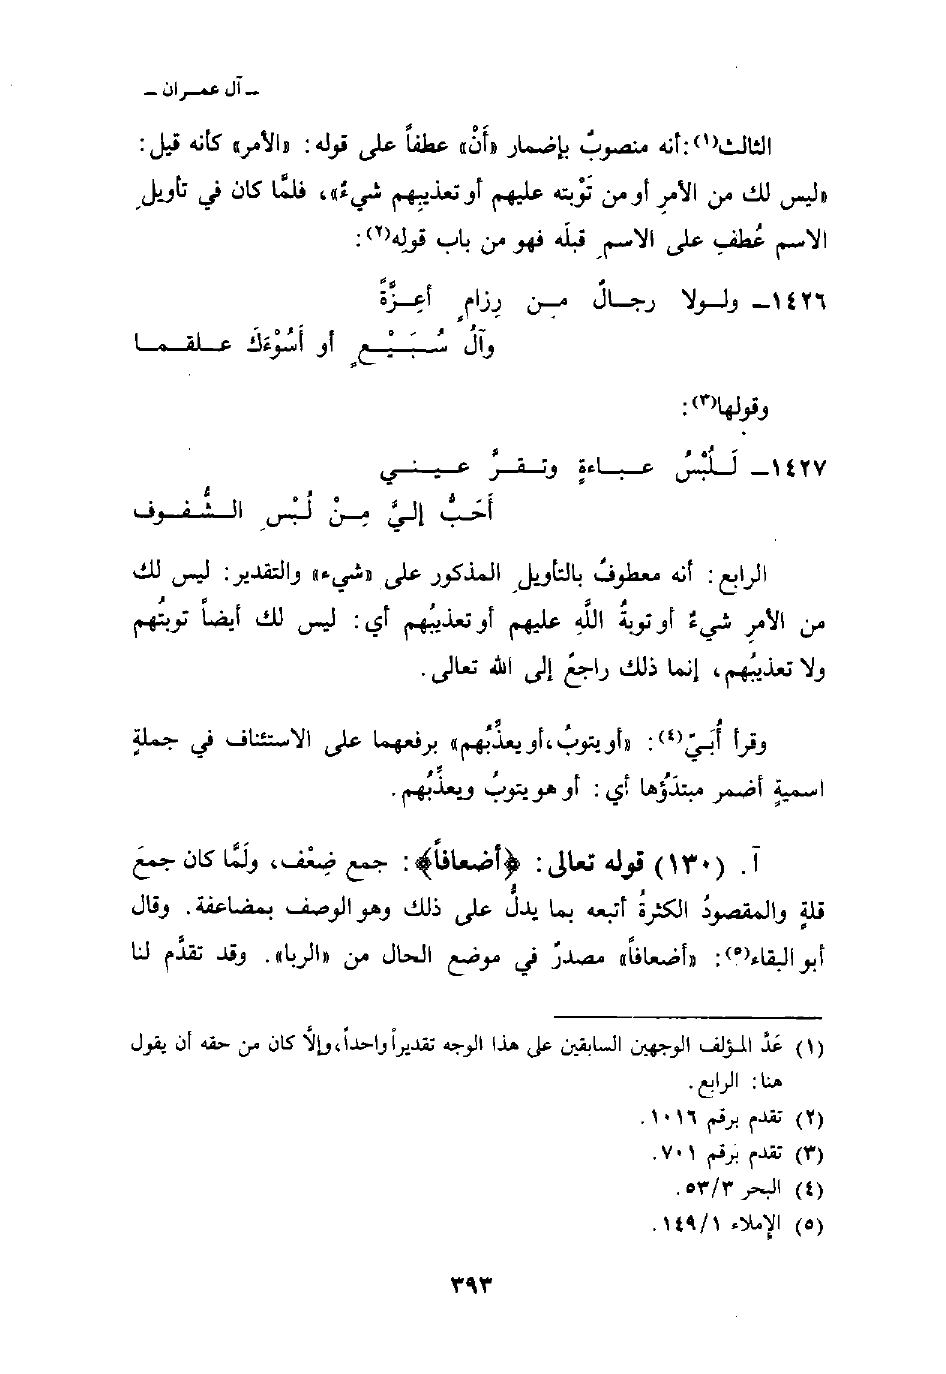 ـ آل عمـران ـ
الثالث(١): أنه منصوبٌ بإضمار «أَنْ» عطفاً على قوله: «الأمر» كأنه قيل:
«ليس لك من الأمرِ أو من تَوْبته عليهم أو تعذيبهم شيءٌ»، فلمَّا كان في تأويلِ
الاسم عُطفِ على الاسمِ قبلَه فهو من باب قولِه(٢):
١٤٢٦ـ ولـولا رجـالٌ مـن رِزامٍ أعِـزَّةٌ
وآلُ سُـبَـيْـعٍ أو أَسُوْءَكَ عـلـقـمـا
وقولها(٣):
١٤٢٧ـ لَـلُبْسُ عـبـاءةٍ وتـقـرُّ عـيـنـي
أَحَـبُّ إلـيَّ مِـنْ لُبْسِ الـشُّـفـوف
الرابع: أنه معطوفٌ بالتأويلِ المذكور على «شيء» والتقدير: ليس لك
من الأمرِ شيءٌ أو توبةُ اللَّهِ عليهم أو تعذيبُهم أي: ليس لك أيضاً توبتُهم
ولا تعذيبُهم، إنما ذلك راجعٌ إلى الله تعالى.
وقرأ أُبَيّ(٤): «أو يتوبُ، أو يعذِّبُهم» برفعهما على الاستئناف في جملةٍ
اسميةٍ أضمر مبتدَؤها أي: أو هو يتوبُ ويعذِّبُهم.
آ. (١٣٠) قوله تعالى: ﴿أضعافاً﴾: جمع ضِعْف، ولَمَّا كان جمعَ
قلةٍ والمقصودُ الكثرةُ أتبعه بما يدلُّ على ذلك وهو الوصف بمضاعفة. وقال
أبو البقاء(٥): «أضعافاً» مصدرٌ في موضع الحال من «الربا». وقد تقدَّم لنا
(١) عَدَّ المؤلف الوجهين السابقين على هذا الوجه تقديراً واحداً، وإلَّا كان من حقه أن يقول
هنا: الرابع.
(٢) تقدم برقم ١٠١٦.
(٣) تقدم برقم ٧٠١.
(٤) البحر ٥٣/٣.
(٥) الإملاء ١٤٩/١.
٣٩٣